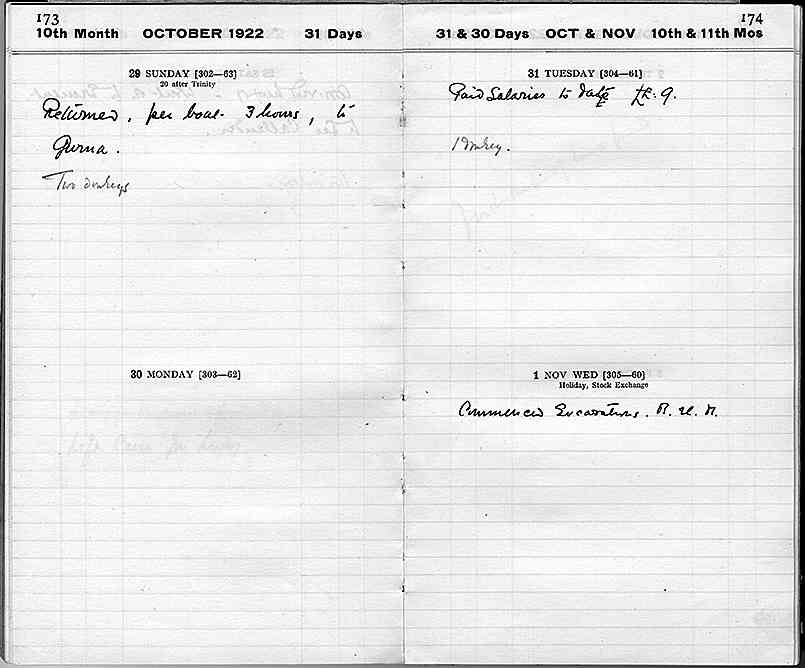 173
10th Month OCTOBER 1922 31 Days
29 SUNDAY [302—63]
20 after Trinity
Returned, per boat 3 hours, to
Gurna.
Two donkeys
30 MONDAY [303—62]
174
31 & 30 Days OCT & NOV 10th & 11th Mos
31 TUESDAY [304—61]
Paid Salaries to date £E: 9.
1 Donkey.
1 NOV WED [305—60]
Holiday, Stock Exchange
Commenced Excavations.